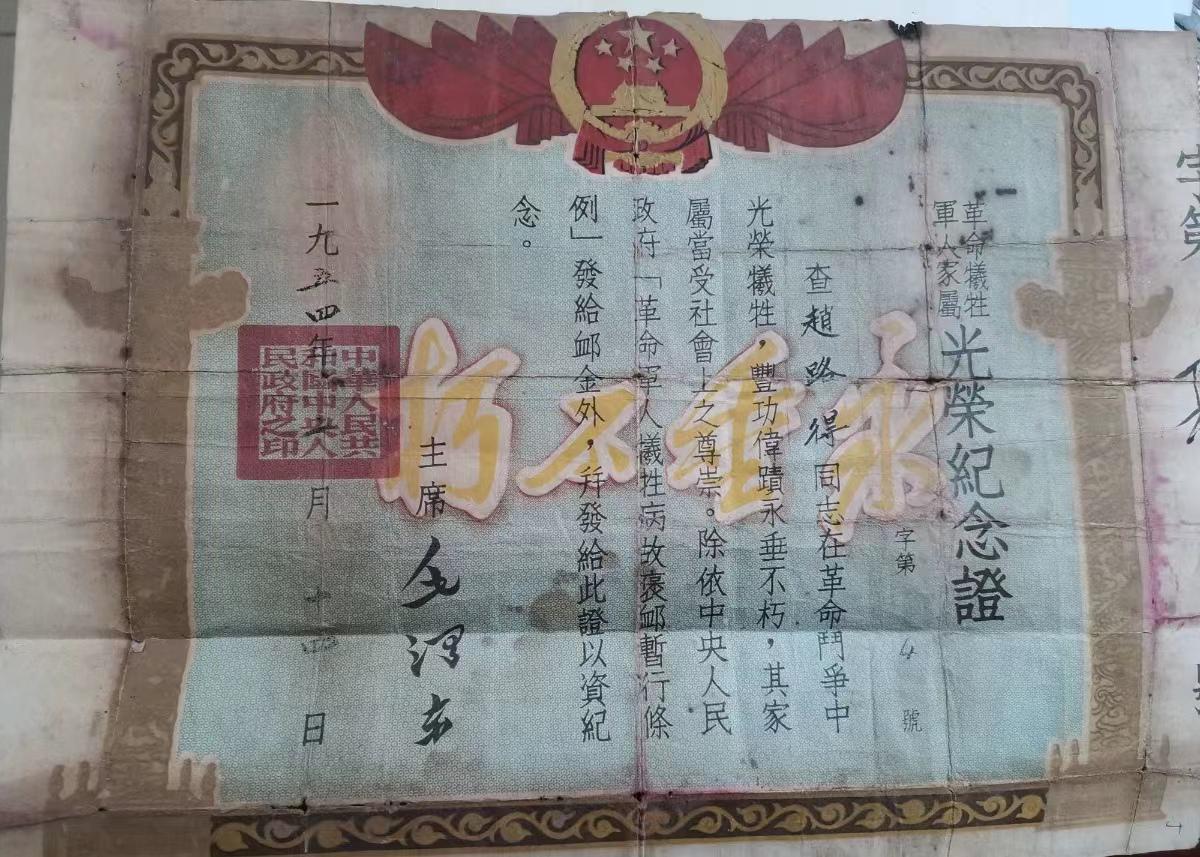 革命犧牲
軍人家屬
光榮紀念證
字第 4 號
查趙路得同志在革命鬥爭中
光榮犧牲，豐功偉蹟永垂不朽，其家
屬當受社會上之尊崇。除依中央人民
政府「革命軍人犧牲病故褒卹暫行條
例」發給卹金外，幷發給此證以資紀
念。
永垂不朽
主席 毛澤东
一九五四年 月十四日
中華人民共
和國中央人
民政府之印
字第